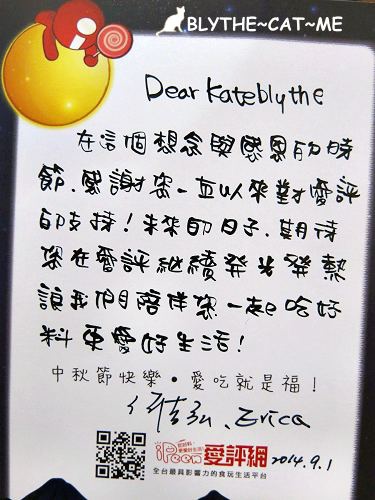 BLYTHE~CAT~ME
Dear Kateblythe
在這個想念與感恩的時
節,感謝您一直以來對愛評
的支持!未來的日子,期待
您在愛評繼續發光發熱
讓我們陪伴您一起吃好
料更愛好生活!
中秋節快樂・愛吃就是福!
Erica
iPeen 愛評網
全台最具影響力的食玩生活平台
2014.9.1